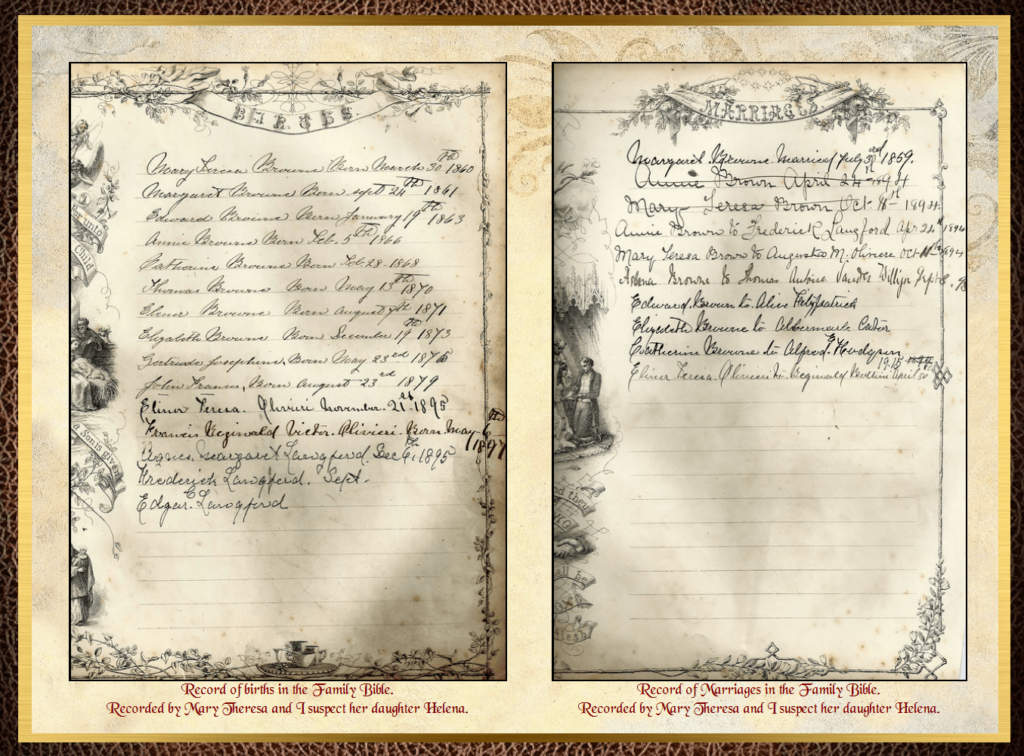 BIRTHS.
Mary Teresa Browne Born March 30th 1860
Margaret Browne Born Sept 24th 1861
Edward Browne Born January 19th 1863
Annie Browne Born Feb. 5th 1866
Catharine Browne Born Feb 28 1868
Thomas Browne Born May 13th 1870
Elenor Browne Born August 7th 1871
Elizabeth Browne Born December 19th 1873
Gertrude Josephine, Born May 23rd 1876
John Francis, Born August 23rd 1879
Elinor Teresa. Olivieri November. 21st 1895
Francis Reginald Victor. Olivieri. Born May 6th 1897
Agnes Margaret Langford. Dec 6th, 1895
Frederick Langford. Sept.
Edgar. Langford
unto
Child
a Son is given
MARRIAGES
Margaret. Browne Married July 3rd 1859.
Annie Brown April 24th 1894
Mary Teresa Brown Oct. 1894.
Annie Brown to Frederick Langford Apr 24th 1894
Mary Teresa Brown to Augustus M. Oliviere Oct 1894
Browne to Thomas Antonio Vander Sept 8.
Edward. Brown to. Alice Fitzpatrick
Elizabeth Browne to Albermarle Cator
Catherin Browne to Alfred. E. Hodgson
Elinor Teresa. Olivieri to. Reginald 1915 April 30
shall be
flesh
Record of births in the Family Bible.
Recorded by Mary Theresa and I suspect her daughter Helena.
Record of Marriages in the Family Bible.
Recorded by Mary Theresa and I suspect her daughter Helena.